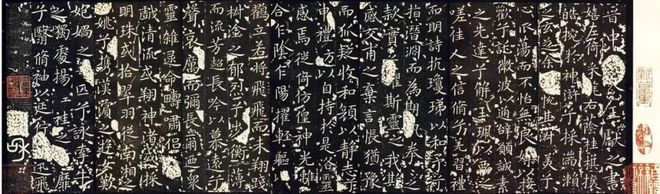 晋中書令王獻之書
嬉左倚采旄右蔭桂旗攘
皓捥於神滸兮採湍瀨
之玄芝余悅其淑美
心振蕩而不怡無良媒以
歡兮託微波以通辭願誠素
之先達兮解玉珮而要
嗟佳人信脩兮習禮
而明詩抗瓊珶以和予兮
指潛淵而為期執拳拳之
款實兮懼斯靈之我欺
感交甫之棄言悵猶豫
而狐疑收和顏以靜志兮
申禮防以自持於是洛靈
感焉徙倚傍偟神光離
合乍陰乍陽擢輕軀
鶴立若將飛而未翔踐
椒塗之郁烈兮步衡薄
而流芳超長吟以慕遠
聲哀厲而彌長爾乃衆
靈雜遝命疇嘯侶或
戲清流或翔神渚或採
明珠或拾翠羽從南湘之
二妃攜漢濱之遊女歎
媧之無匹兮詠牽牛
之獨處揚輕袿之猗靡
兮翳脩袖以延佇迅飛